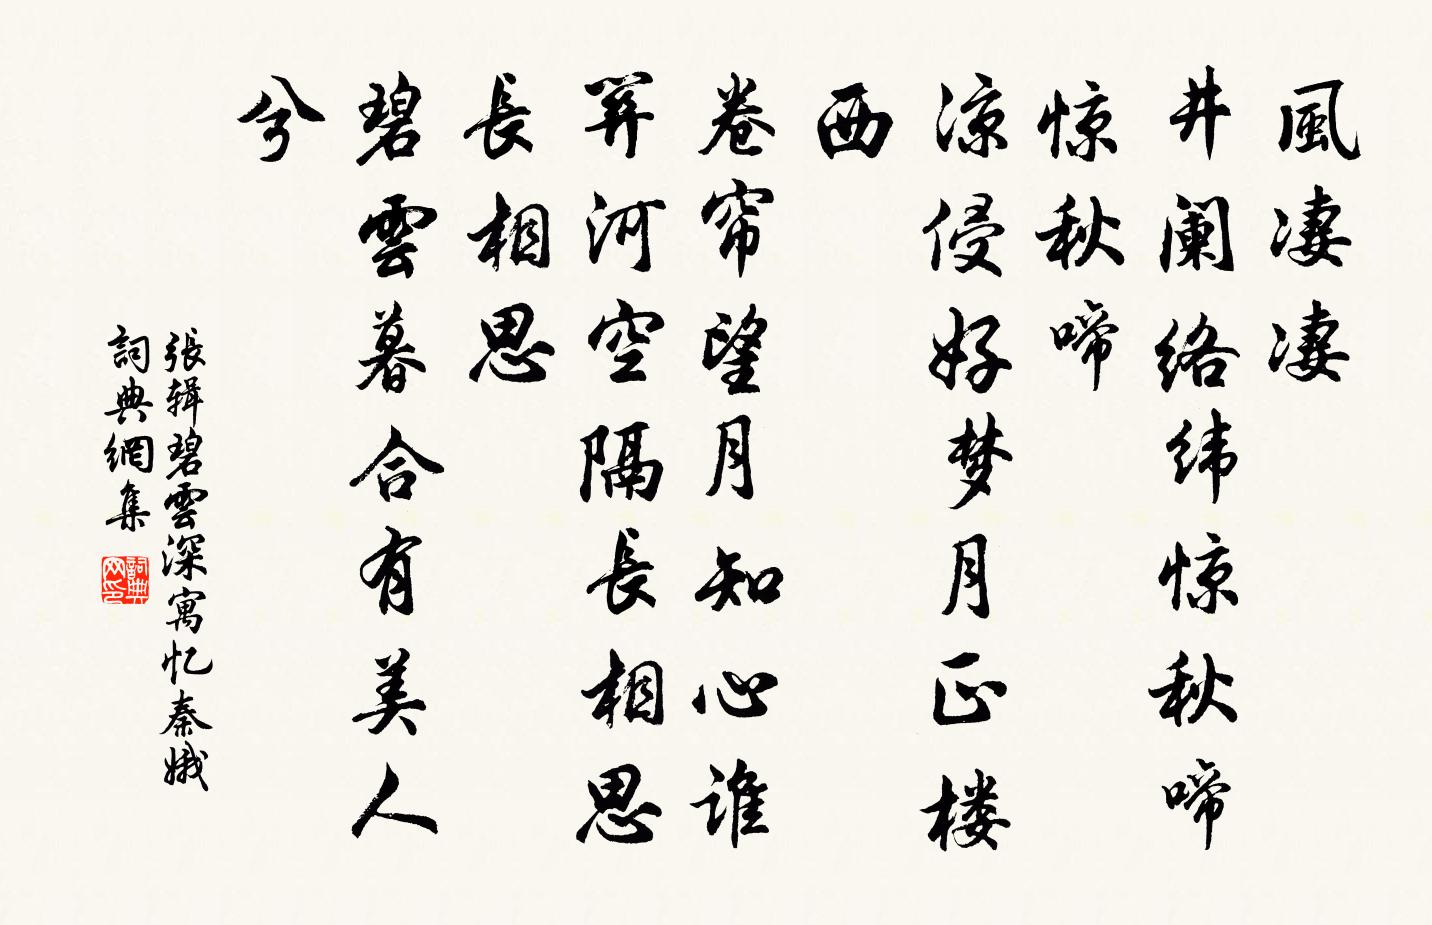 風凄凄
井阑络纬惊秋啼
惊秋啼
凉侵好梦月正楼
西
卷帘望月知心谁
關河空隔長相思
長相思
碧雲暮合有美人
兮
張辑碧雲深寓忆秦娥
詞典網集
詞典网印